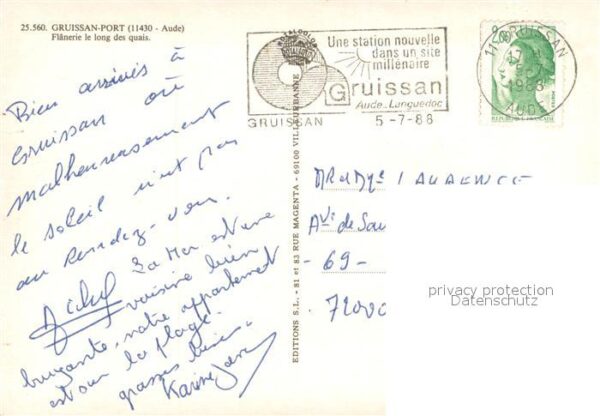 25.560. GRUISSAN-PORT (11430 - Aude)
Flânerie le long des quais.
Bien arrivés à
Gruissan où
malheureusement
le soleil n'est pas
au rendez-vous.
La Mer est une
voisine bien
bruyante, notre appartement
est sur la plage.
grosses bises.
Karine
EDITIONS S.L. - 81 et 83 RUE MAGENTA - 69100 VILLEURBANNE
Une station nouvelle
dans un site
millénaire
Gruissan
Aude.Languedoc
GRUISSAN
5-7-88
11 GRUISSAN
1988
AUDE
Mr ou Mme LAURENCE
Av. de
- 69 -
72000
privacy protection
Datenschutz